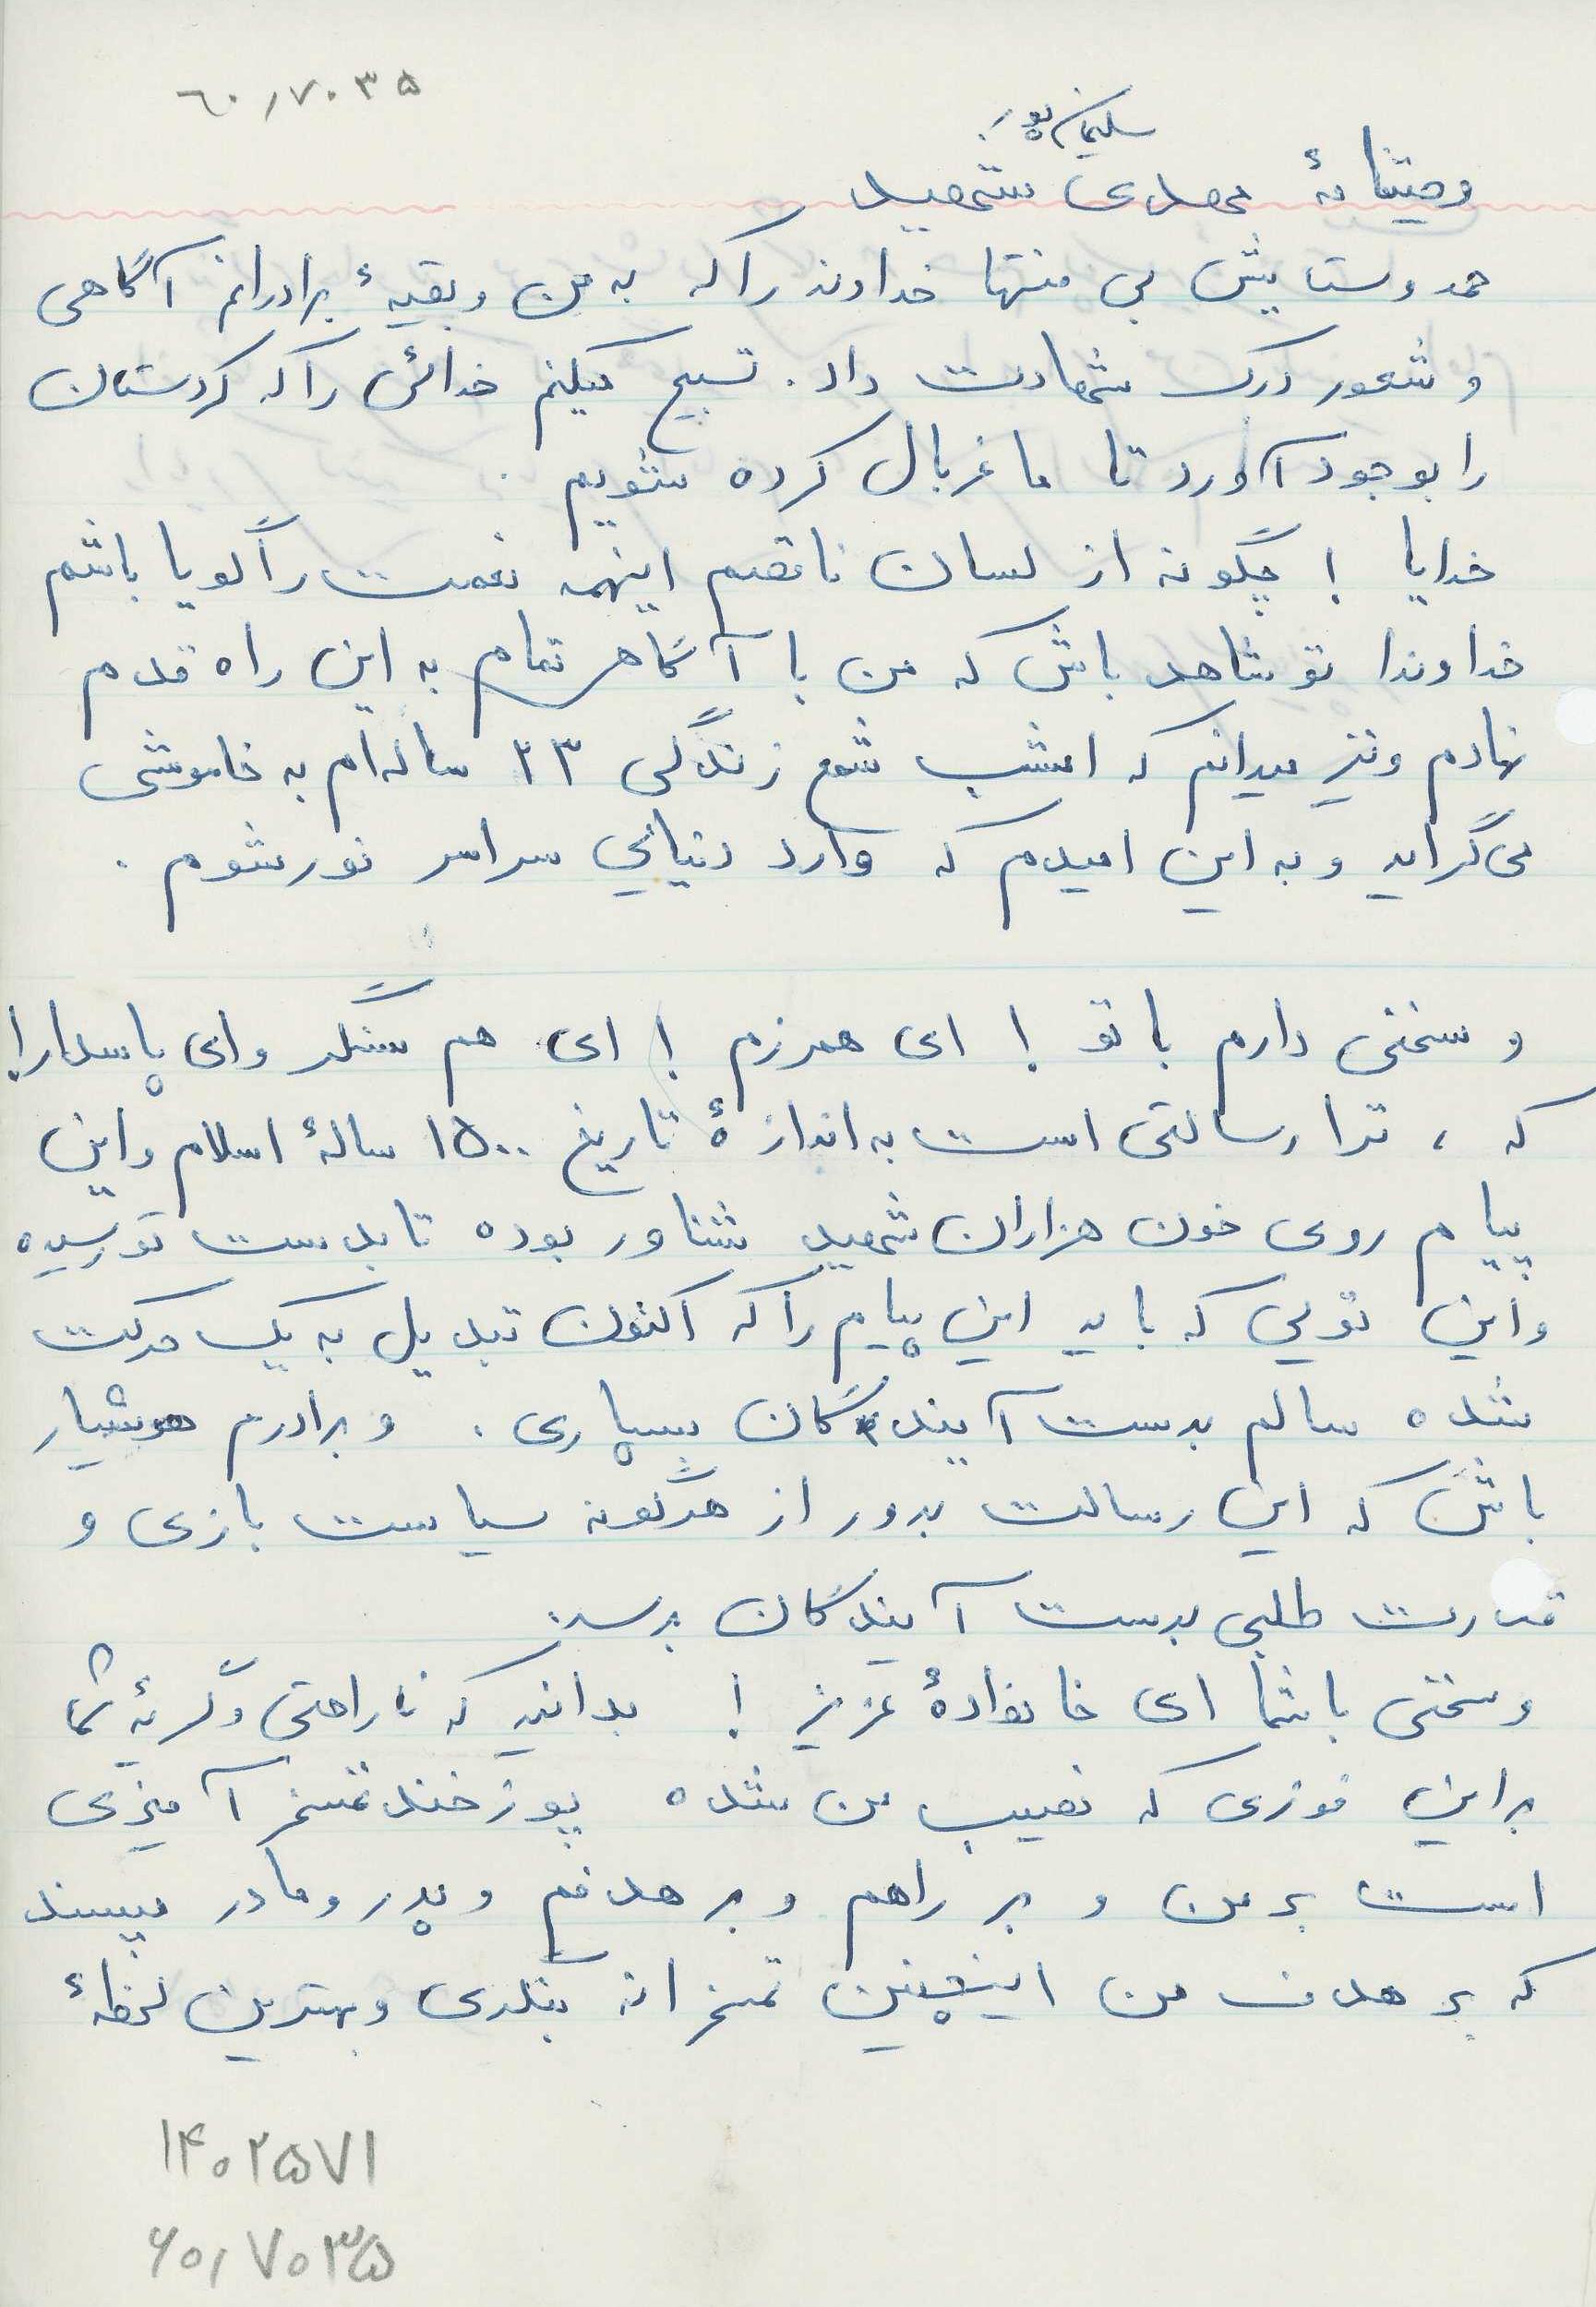 ۶۰٫۷۰۳۵
سلیمان پور
وصیتنامهٔ مهدی شهید
حمد و ستایش بی منتها خداوند را که به من و بقیهٔ برادرانم آگاهی
و شعور درک شهادت داد. تسبیح میکنم خدائی را که کردستان
را بوجود آورد تا ما غربال کرده شویم.
خدایا ! چگونه از لسان ناقصم اینهمه نعمت را گویا باشم
خداوندا تو شاهد باش که من با آگاهی تمام به این راه قدم
نهادم و نیز میدانم که امشب شمع زندگی ۲۳ ساله‌ام به خاموشی
می‌گراید و به این امیدم که وارد دنیائی سراسر نور شوم.
و سخنی دارم با تو ! ای همرزم ! ای هم سنگر و ای پاسدار!
که ، ترا رسالتی است به اندازهٔ تاریخ ۱۵۰۰ سالهٔ اسلام و این
پیام روی خون هزاران شهید شناور بوده تا بدست تو رسیده
و این توئی که باید این پیام را که اکنون تبدیل به یک حرکت
شده سالم بدست آیندگان بسپاری. و برادرم هوشیار
باش که این رسالت بدور از هرگونه سیاست بازی و
قدرت طلبی بدست آیندگان برسد.
و سخنی با شما ای خانوادهٔ عزیز ! بدانید که ناراحتی و گریهٔ شما
بر این فوزی که نصیب من شده پوزخند تمسخر آمیزی
است بر من و بر راهم و بر هدفم و پدر و مادر مپسند
که بر هدف من اینچنین تمسخرانه بنگری و بهترین لحظهٔ
۱۴۰۲۵۷۱
۶۰٫۷۰۳۵